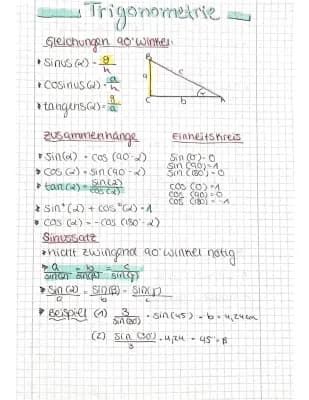 Trigonometrie
Gleichungen 90° Winkel:
• sinus(α) = g/h
• cosinus(α) = a/h
• tangens(α) = g/a
B
a
c
C
b
A
α
Zusammenhänge
• sin(α) = cos(90-α)
• cos(α) = sin(90-α)
• tan(α) = sin(α)/cos(α)
• sin²(α) + cos²(α) = 1
• cos(α) = -cos(180°-α)
Einheitskreis
sin(0) = 0
sin(90) = 1
sin(180) = 0
cos(0) = 1
cos(90) = 0
cos(180) = -1
Sinussatz
• nicht zwingend 90° winkel nötig
• a/sin(α) = b/sin(β) = c/sin(γ)
• sin(α)/a = sin(β)/b = sin(γ)/c
• Beispiel (1) 3/sin(30) · sin(45) = b = 4,24cm
(2) sin(30)/3 · 4,24 = 45° = β